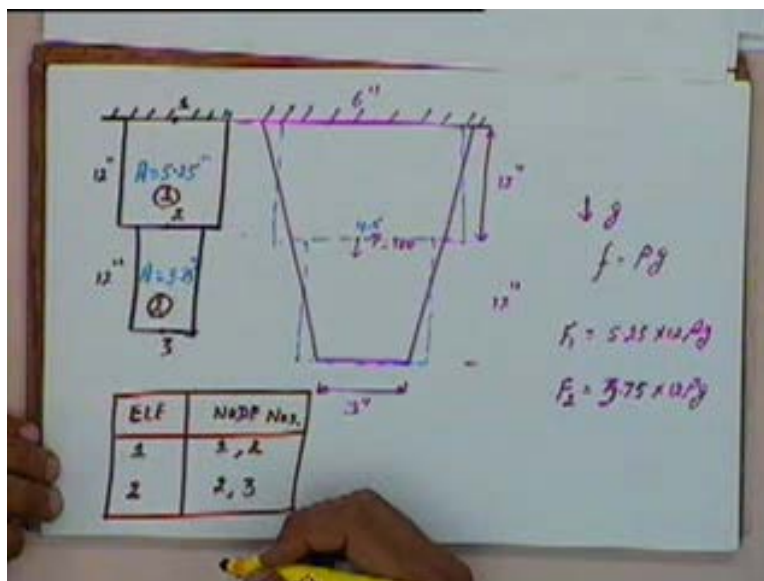 1
6"
12"
A=5.25"
1
2
12"
A=3.75"
2
3
4.5
P=100
12"
12"
3"
↓ g
f = ρg
F₁ = 5.25 × 12 ρg
F₂ = 3.75 × 12 ρg
ELE NODE Nos.
1 1, 2
2 2, 3